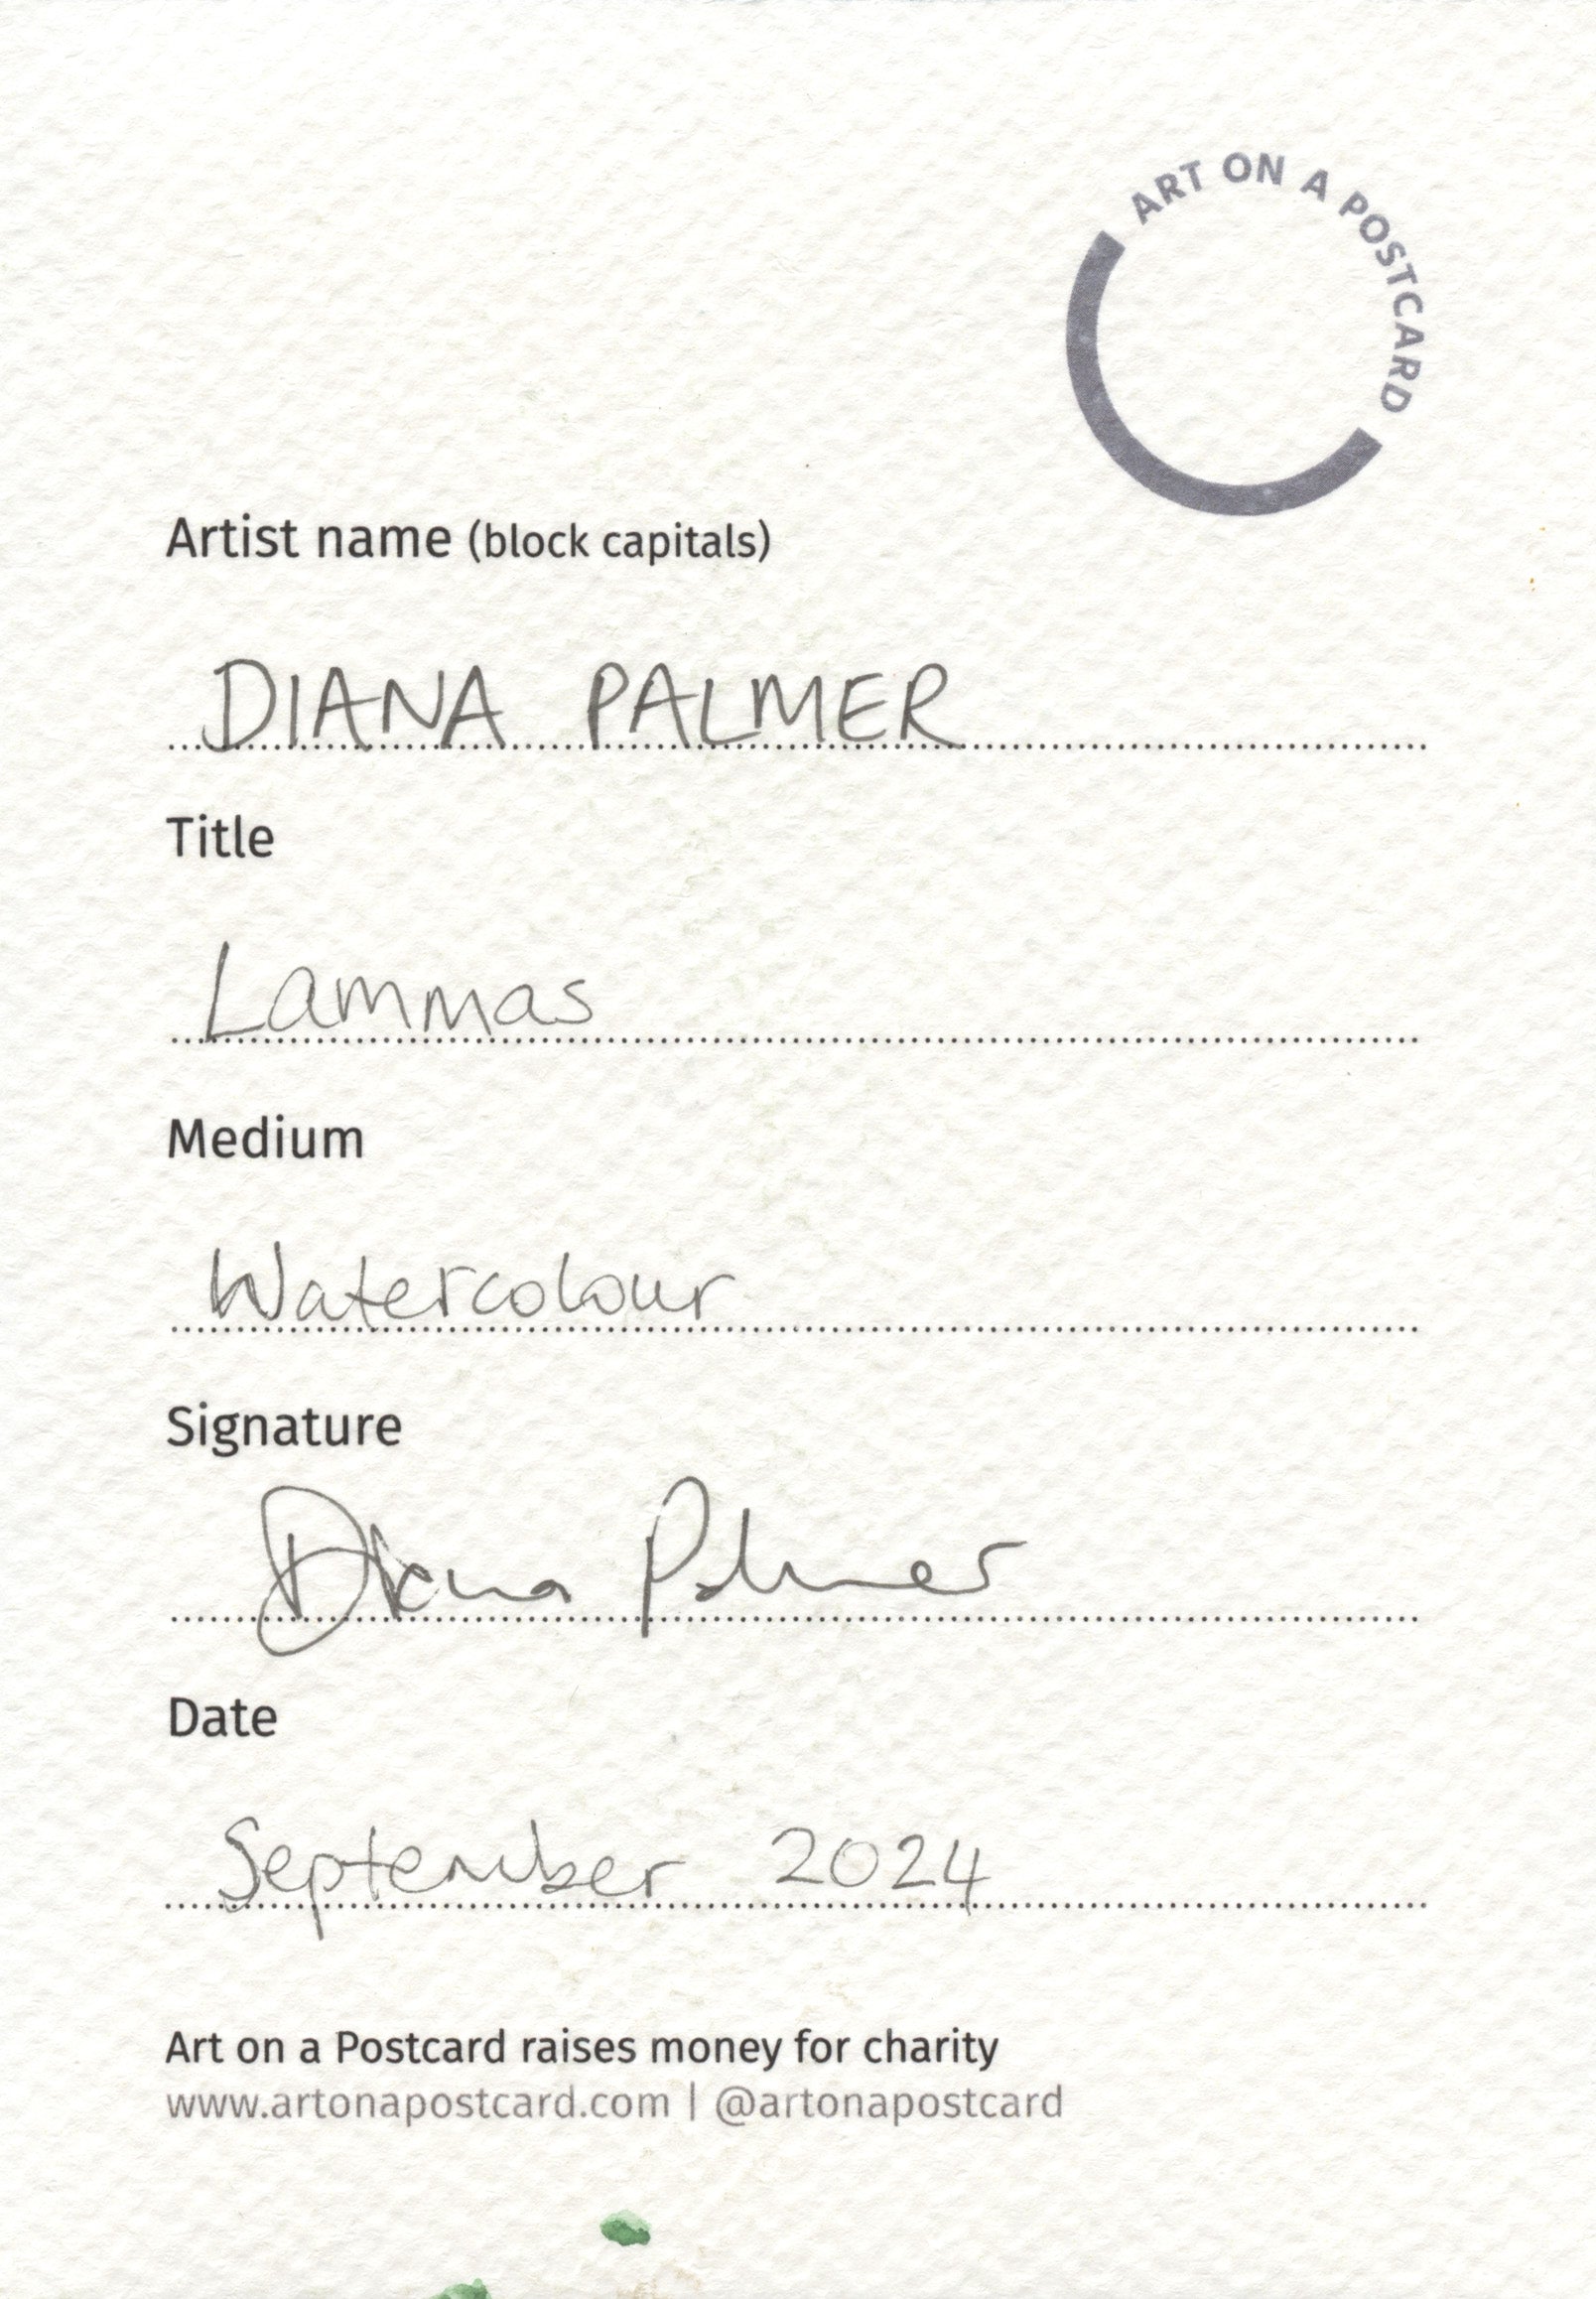 ART ON A POSTCARD
Artist name (block capitals)
DIANA PALMER
Title
Lammas
Medium
Watercolour
Signature
Diana Palmer
Date
September 2024
Art on a Postcard raises money for charity
www.artonapostcard.com | @artonapostcard